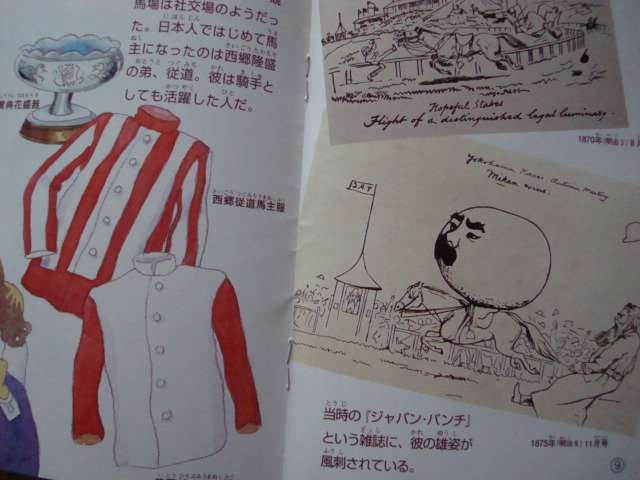 馬場は社交場のようだっ
た。日本人ではじめて馬
主になったのは西郷隆盛
の弟、従道。彼は騎手と
しても活躍した人だ。
賞典花盛器
西郷従道馬主服
Hopeful Stakes
Flight of a distinguished legal luminary.
1870年(明治3)8月
Yokohama Races Autumn Meeting
Mikan wins.
当時の『ジャパン・パンチ』
という雑誌に、彼の雄姿が
風刺されている。
1875年(明治8)11月号
9